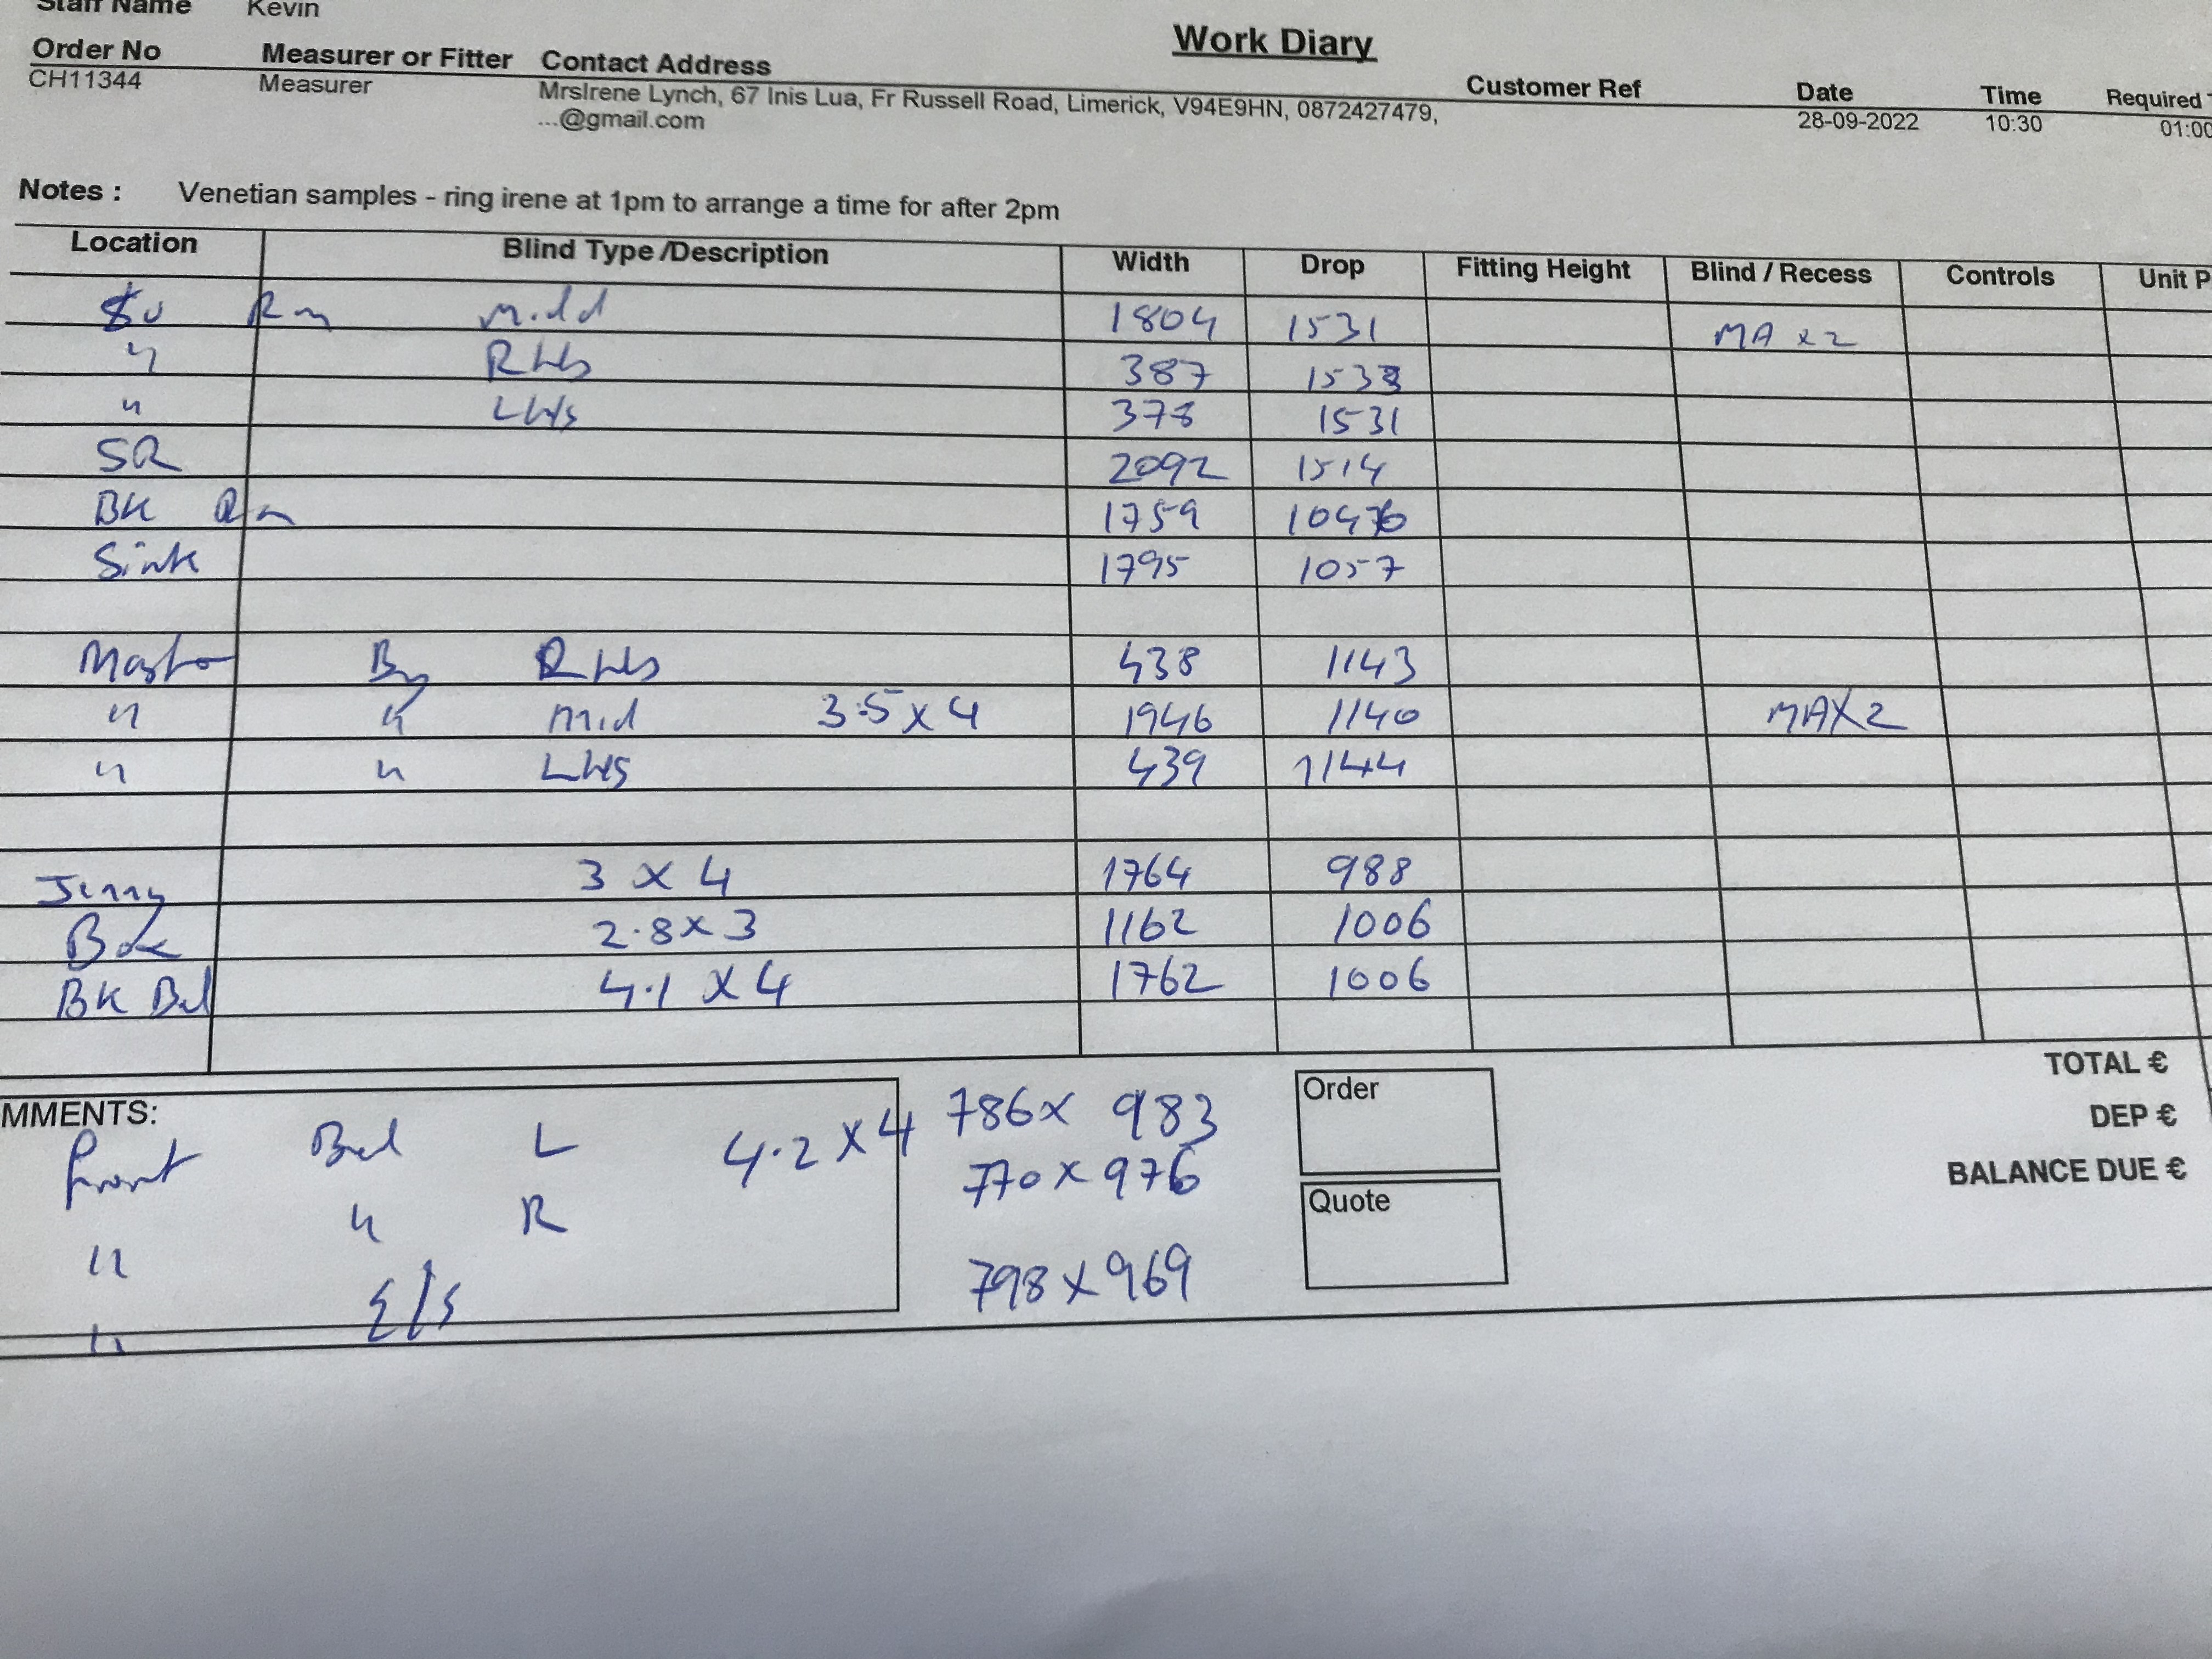 Staff Name Kevin
Work Diary
Order No Measurer or Fitter Contact Address Customer Ref Date Time Required
CH11344 Measurer MrsIrene Lynch, 67 Inis Lua, Fr Russell Road, Limerick, V94E9HN, 0872427479, 28-09-2022 10:30 01:00
...@gmail.com
Notes : Venetian samples - ring irene at 1pm to arrange a time for after 2pm
Location Blind Type /Description Width Drop Fitting Height Blind / Recess Controls Unit P
Rm Midd 1804 1531 MA x 2
" RHS 387 153
" LHS 378 1531
SR 2092 1514
BK Rm 1759
Sink 1795 1057
Master By RHS 438 1143
" " Mid 3.5 x 4 1946 1140 MAX2
" " LHS 439 1144
Jenny 3 X 4 1764 988
2.8 x 3 1162 1006
BK Bed 4.1 X 4 1762 1006
MMENTS:
Front Bed L 4.2 X 4 786 x 983
" " R 770 x 976
" E/S 798 X 969
Order
Quote
TOTAL €
DEP €
BALANCE DUE €